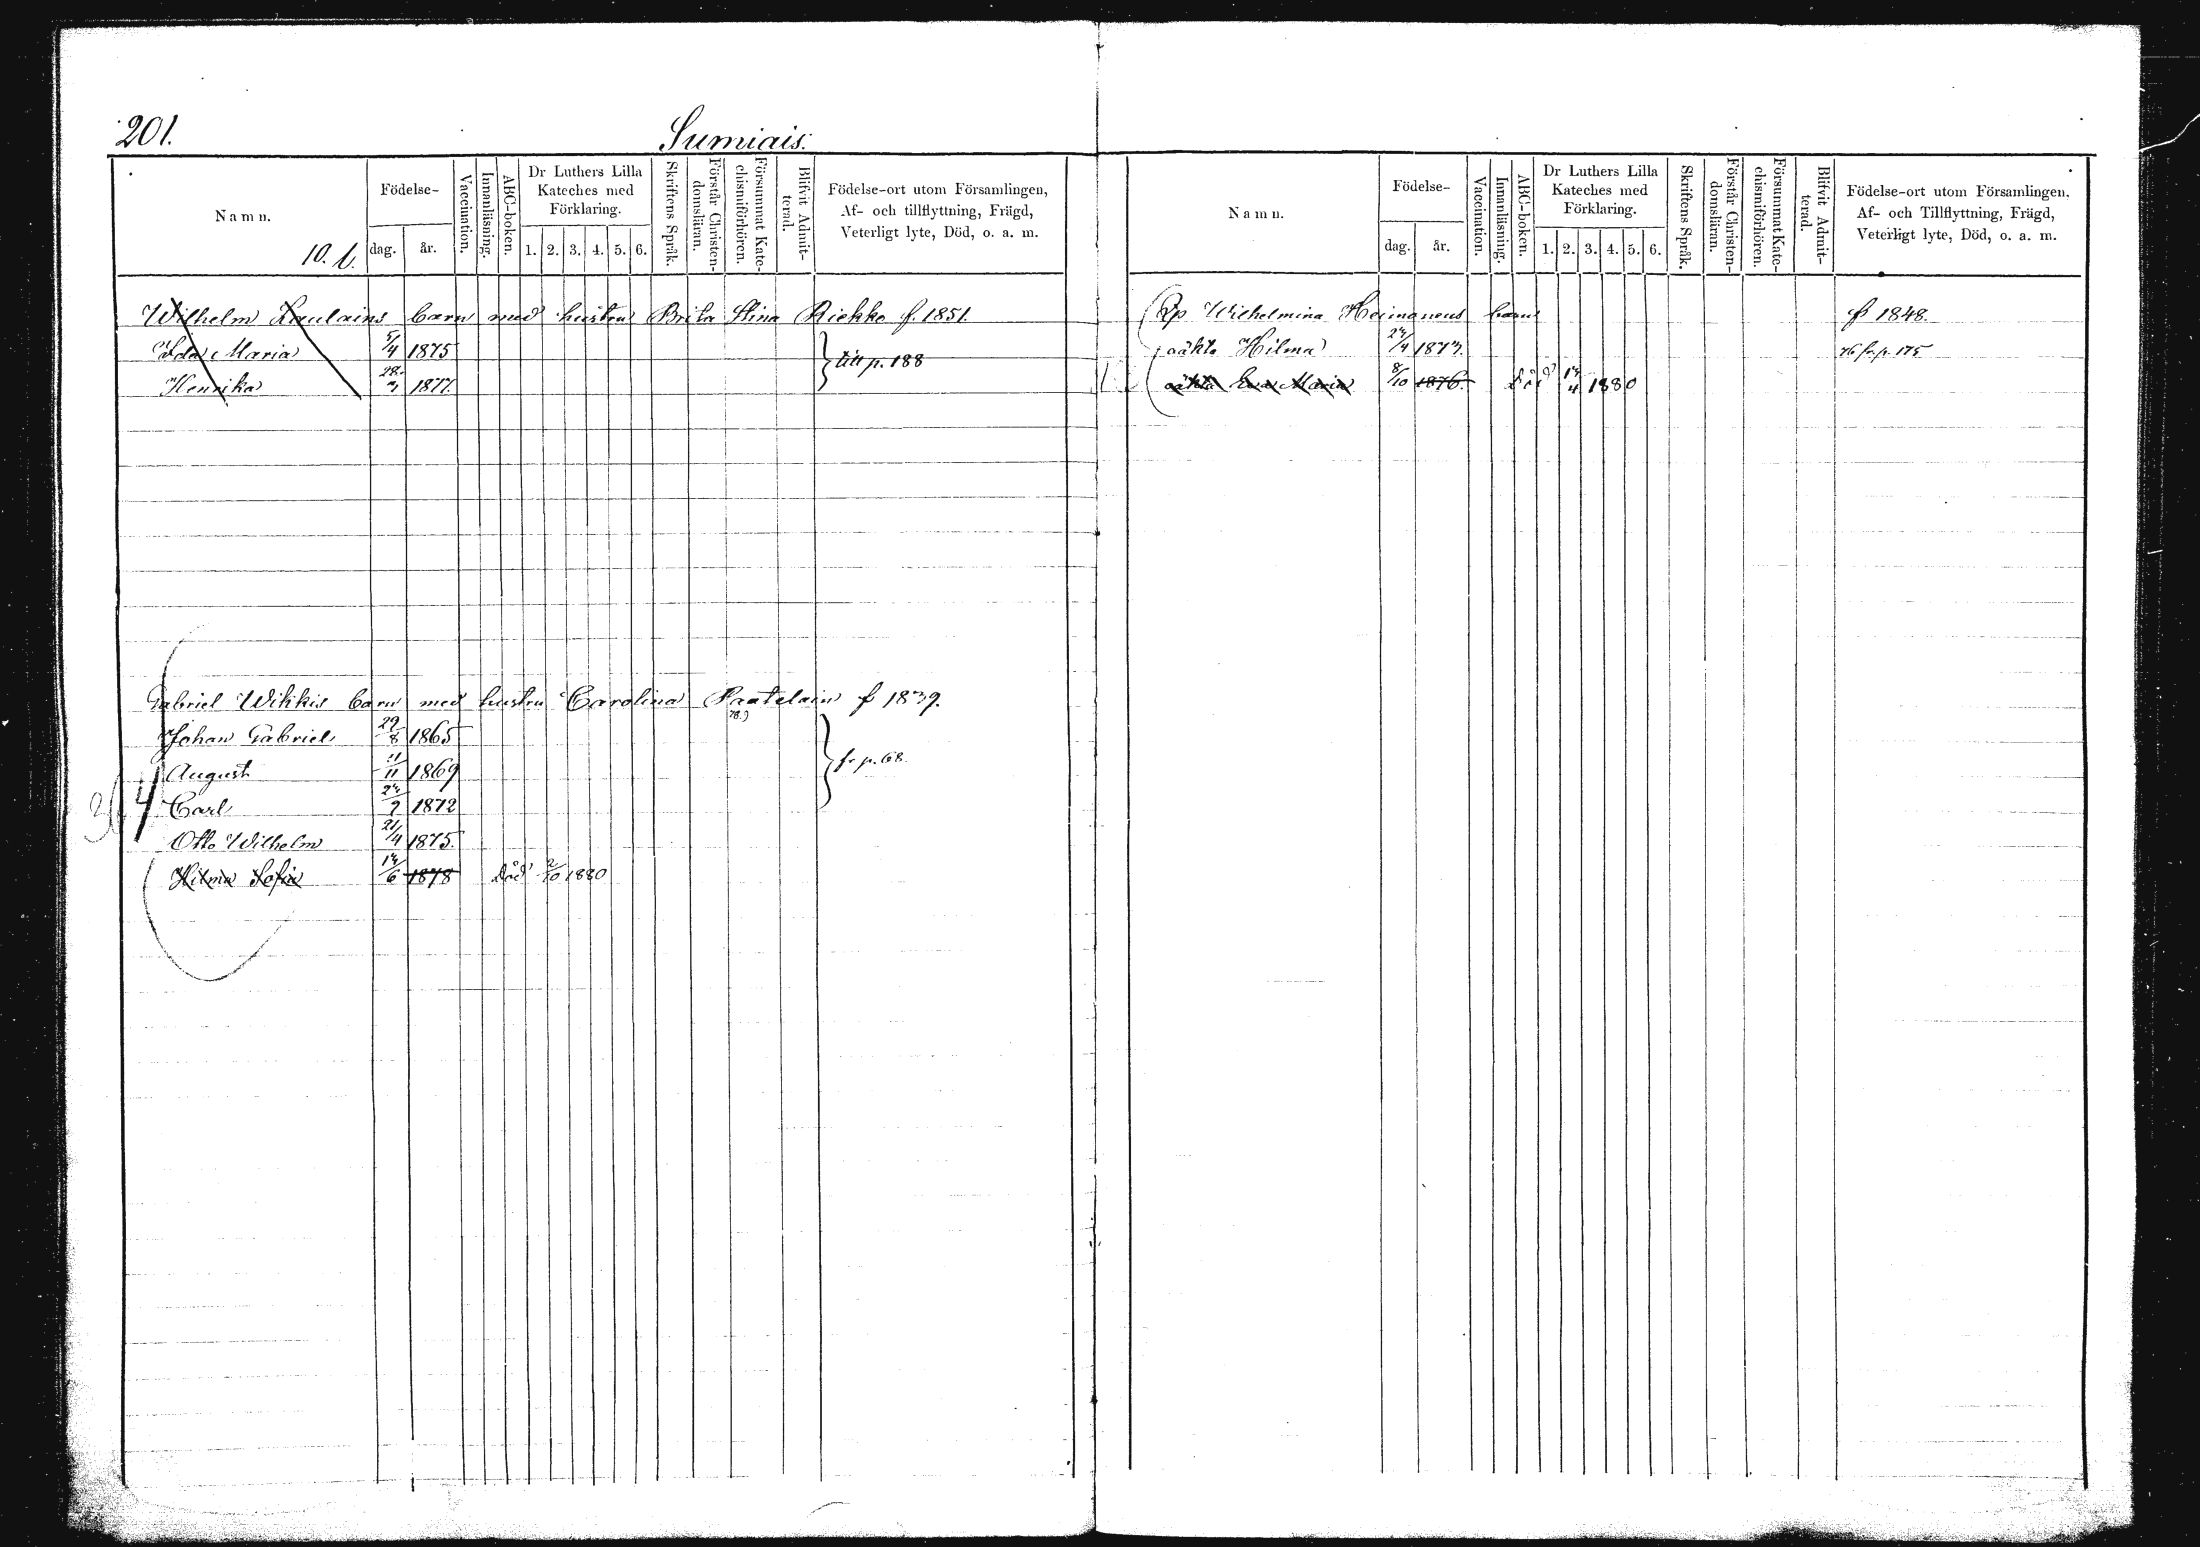 201.
Sumiais.
Namn.
10. b.
Födelse-
dag.
år.
Vaccination.
Innanläsning.
ABC-boken.
Dr Luthers Lilla
Kateches med
Förklaring.
1. 2. 3. 4. 5. 6.
Skriftens Språk.
Förstår Christen-
domsläran.
Försummat Kate-
chismiförhören.
Blifvit Admit-
terad.
Födelse-ort utom Församlingen,
Af- och tillflyttning, Frägd,
Veterligt lyte, Död, o. a. m.
Wilhelm Laulains barn med hustru Brita Stina Riekko f. 1851.
Ida Maria 5/4 1875
till p. 188
Henrika 28/7 1877.
Gabriel Wikkis barn med hustru Carolina Paatelain f 1839.
Johan Gabriel 29/8 1865
August 11/11 1869
fr p. 68.
Carl 1872
Otto Wilhelm 21/4 1875.
Hilma Sofia 17/6 1878 Död 2/10 1880
Namn.
Födelse-
dag.
år.
Vaccination.
Innanläsning.
ABC-boken.
Dr Luthers Lilla
Kateches med
Förklaring.
1. 2. 3. 4. 5. 6.
Skriftens Språk.
Förstår Christen-
domsläran.
Försummat Kate-
chismiförhören.
Blifvit Admit-
terad.
Födelse-ort utom Församlingen,
Af- och Tillflyttning, Frägd,
Veterligt lyte, Död, o. a. m.
Wilhelmina Heimonens barn f 1848.
oäkta Hilma 1873. 76 fr. p. 175
oäkta Eva Maria 8/10 1876. Död 17/4 1880